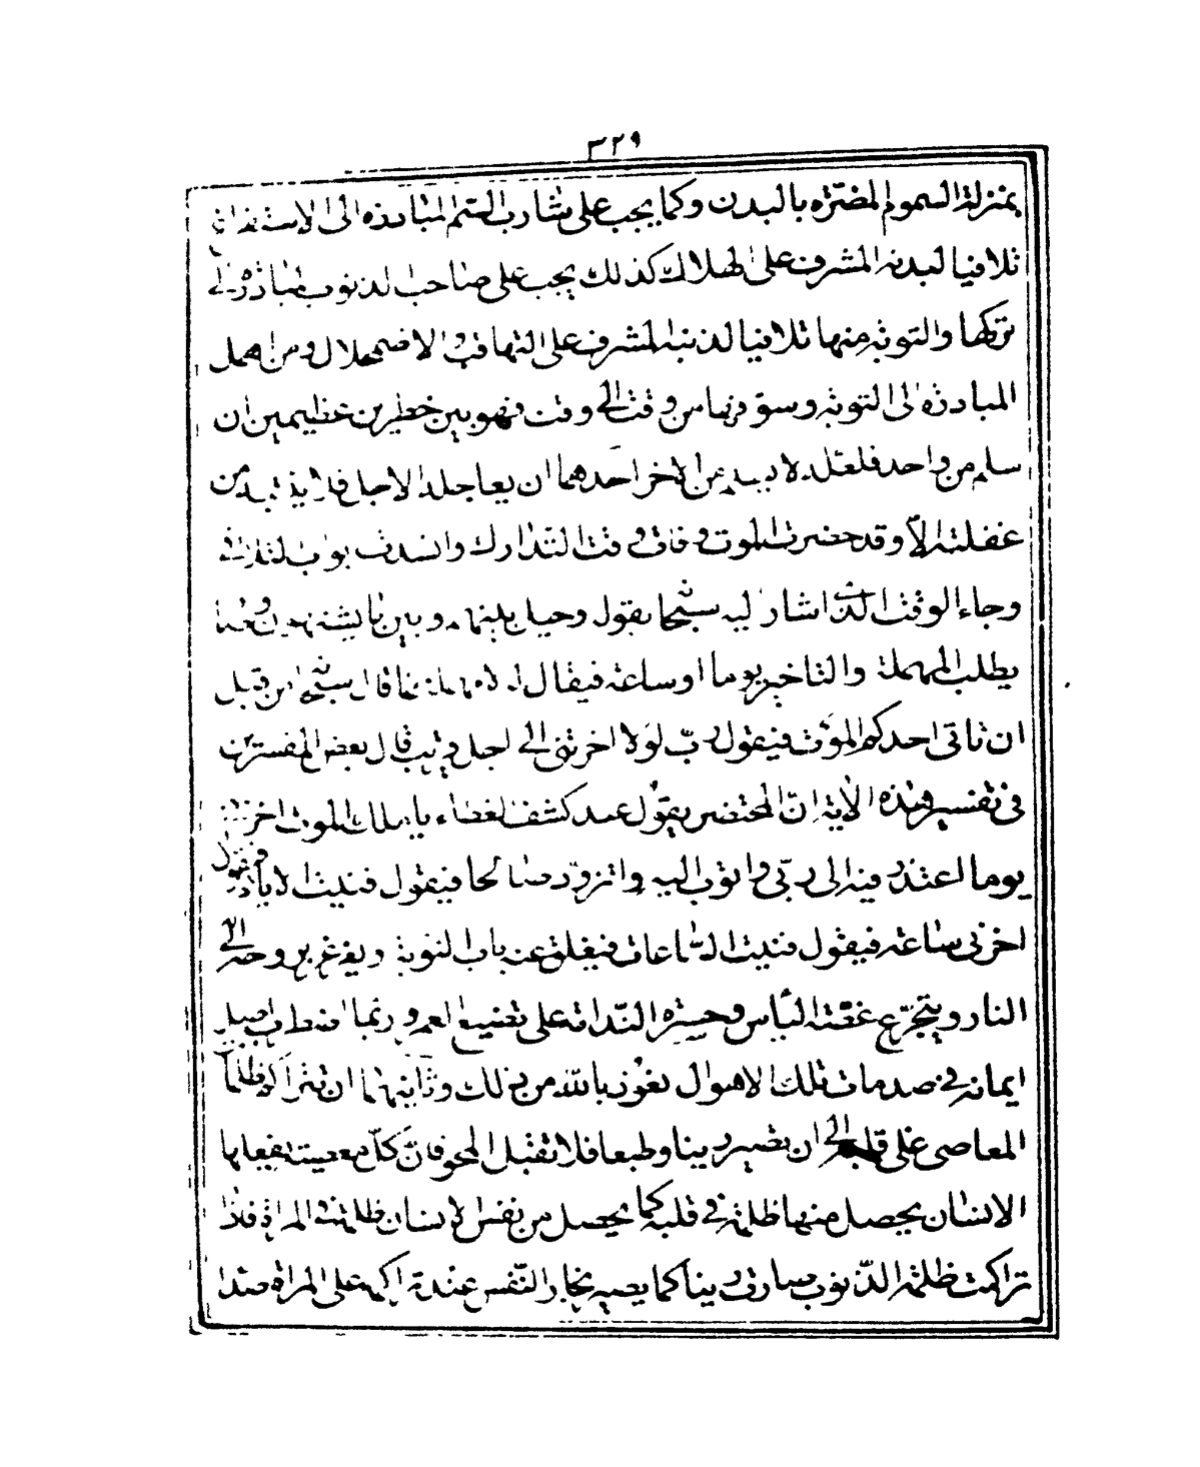 ٣٢٩
بمنزلة السموم المضرّة بالبدن وكما يجب على شارب السّم المبادرة الى الاستفراغ
تلافيا لبدنه المشرف على الهلاك كذلك يجب على صاحب الذنوب المبادرة الى
تركها والتوبة منها تلافيا لدينه المشرف على التهافت والاضمحلال ومن اهمل
المبادرة الى التوبة وسوّفها من وقت الى وقت فهو بين خطرين عظيمين ان
سلم من واحد فلعله لا يسلم من الاخر احدهما ان يعاجله الاجل فلا يتنبه من
غفلته الّا وقد حضره الموت وفات وقت التدارك وانسدت ابواب التلافى
وجاء الوقت الذى اشار اليه سبحانه بقوله وحيل بينهم وبين ما يشتهون وصار
يطلب المهملة والتاخير يوما او ساعة فيقال له لا مهلة كما قال سبحانه من قبل
ان ياتى احدكم الموت فيقول ربّ لولا اخرتنى الى اجل قريب قال بعض المفسّرين
فى تفسير هذه الاية انّ المحتضر يقول عند كشف الغطاء يا ملك الموت اخرنى
يوما اعتذر فيه الى ربّى واتوب اليه واتزوّد صالحا فيقول فنيت الايام فيقول
اخرنى ساعة فيقول فنيت السّاعات فيغلق عنه باب التوبة ويغرغر بروحه الى
النار ويتجرّع غصّة اليأس وحسرة النّدامة على تضييع العمر وربّما اضطرب اصل
ايمانه فى صدمات تلك الاهوال نعوذ بالله من ذلك وثانيهما ان تتراكم ظلمة
المعاصى على قلبه الى ان تصير رينا وطبعا فلا تقبل المحو فانّ كلّ معصية يفعلها
الانسان يحصل منها ظلمة فى قلبه كما يحصل من نفس الانسان ظلمة فى المراة فاذا
تراكمت ظلمة الذّنوب صارت رينا كما يصير بخار النّفس عند تراكمه على المراة صدا